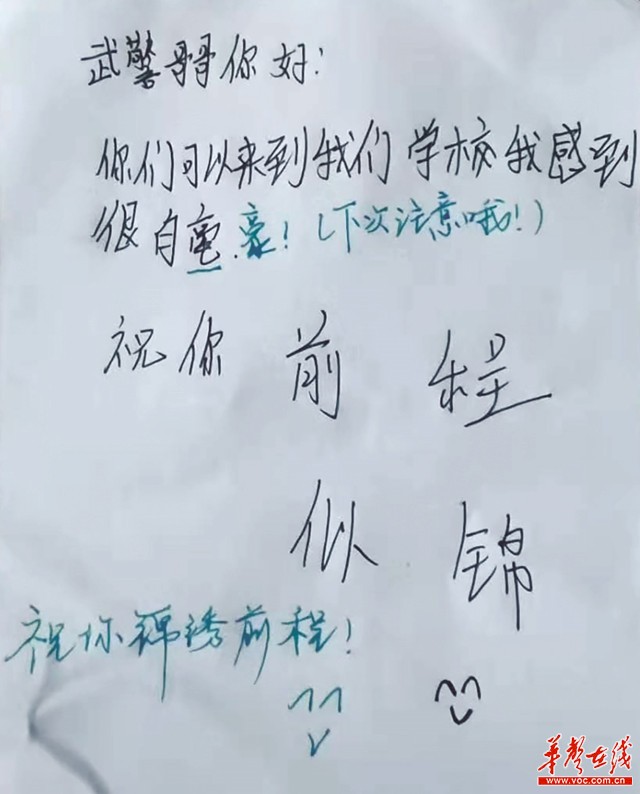 武警哥哥你好：
你们可以来到我们学校我感到
很自毫.豪！（下次注意哦！）
祝你 前 程
似 锦
祝你锦绣前程！
华声在线
www.voc.com.cn